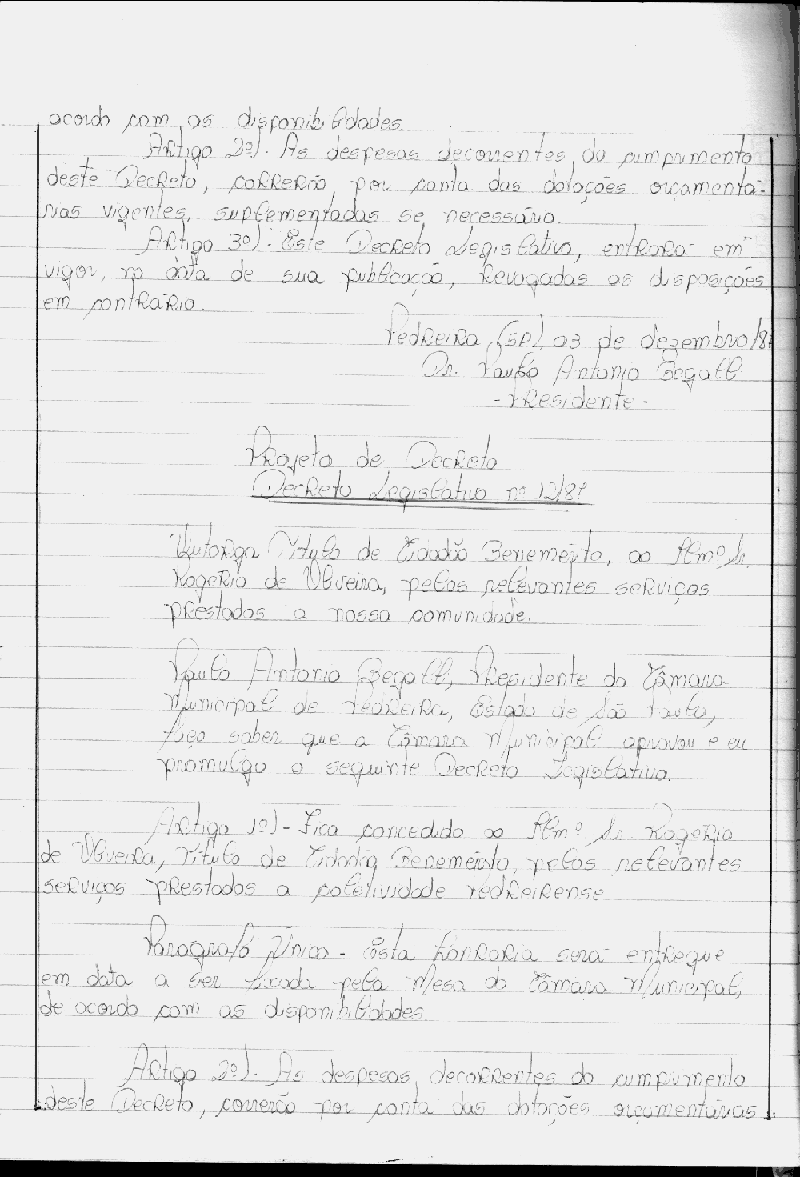 acordo com as disponibilidades.
Artigo 2º). As despesas decorrentes do cumprimento
deste Decreto, correrão por conta das dotações orçamentá-
rias vigentes, suplementadas se necessário.
Artigo 3º). Este Decreto Legislativo, entrará em
vigor, na data de sua publicação, revogadas as disposições
em contrário.
Pedreira, (SP), 03 de dezembro/87
Dr. Paulo Antonio Begalli
- Presidente -
Projeto de Decreto
Decreto Legislativo nº 12/87
Outorga Título de Cidadão Benemérito, ao Ilmº Sr.
Rogério de Oliveira, pelos relevantes serviços
prestados a nossa comunidade.
Paulo Antonio Begalli, Presidente da Câmara
Municipal de Pedreira, Estado de São Paulo,
faço saber que a Câmara Municipal aprovou e eu
promulgo o seguinte Decreto Legislativo.
Artigo 1º) - Fica concedido ao Ilmº Sr. Rogério
de Oliveira, Título de Cidadão Benemérito, pelos relevantes
serviços prestados a coletividade Pedreirense.
Paragrafo Único - Esta honraria será entregue
em data a ser fixada pela Mesa da Câmara Municipal,
de acordo com as disponibilidades.
Artigo 2º). As despesas, decorrentes do cumprimento
deste Decreto, correrão por conta das dotações orçamentárias